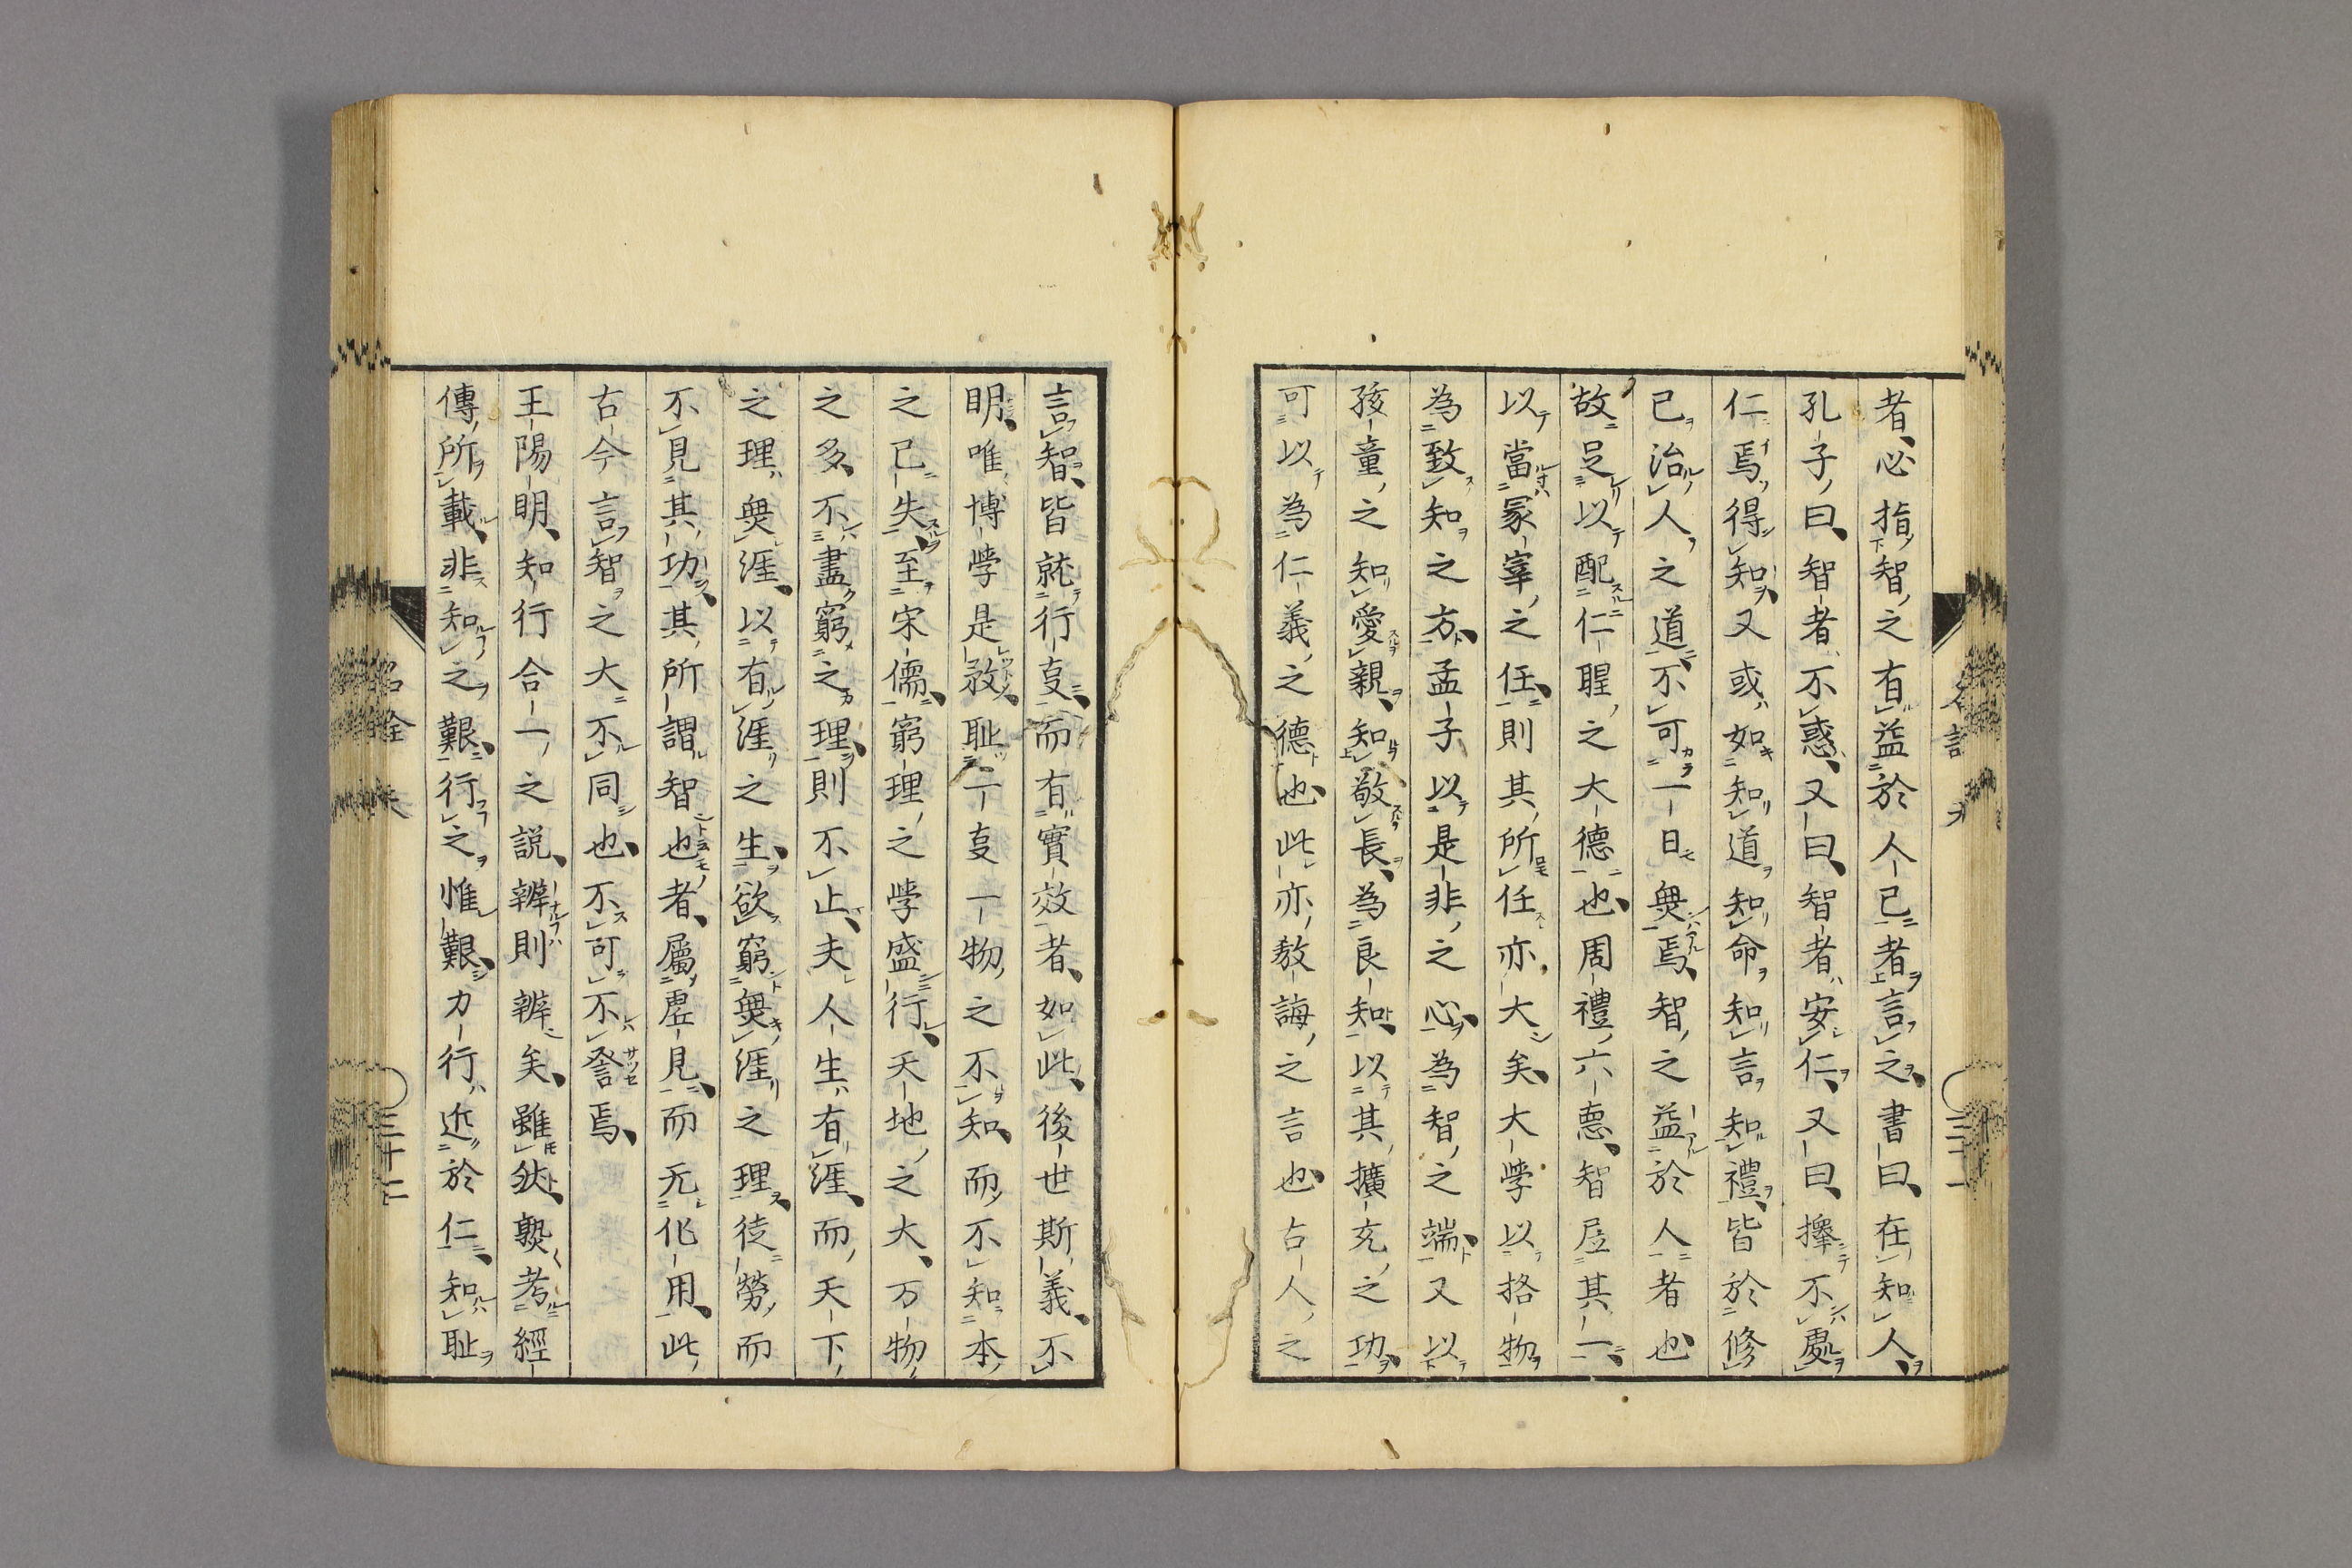 者心指智之有益於人己者言之書曰在知人
孔子曰智者不惑又曰智者安仁又曰擇不處
仁焉得知又或如知道知命知言知禮皆於修
己治人之道不可一日無焉智之益於人者也
故足以配仁聖之大德也周禮六悳智居其一
以當冢宰之任則其所任亦大矣大學以格物
為致知之方孟子以是非之心為智之端又以
孩童之知愛親知敬長為良知以其擴充之功
可以為仁義之德也此亦教誨之言也古人之
言智皆就行事而有實效者如此後世斯義不
明唯博學是敄耻一事一物之不知而不知本
之已失至宋儒窮理之學盛行天地之大万物
之多不盡窮之理則不止夫人生有涯而天下
之理無涯以有涯之生欲窮無涯之理徒勞而
不見其功其所謂智也者屬虛見而无化用此
古今言智之大不同也不可不詧焉
王陽明知行合一之說辨則辨矣雖然熟考經
傳所載非知之艱行之惟艱力行近於仁知耻
三十二